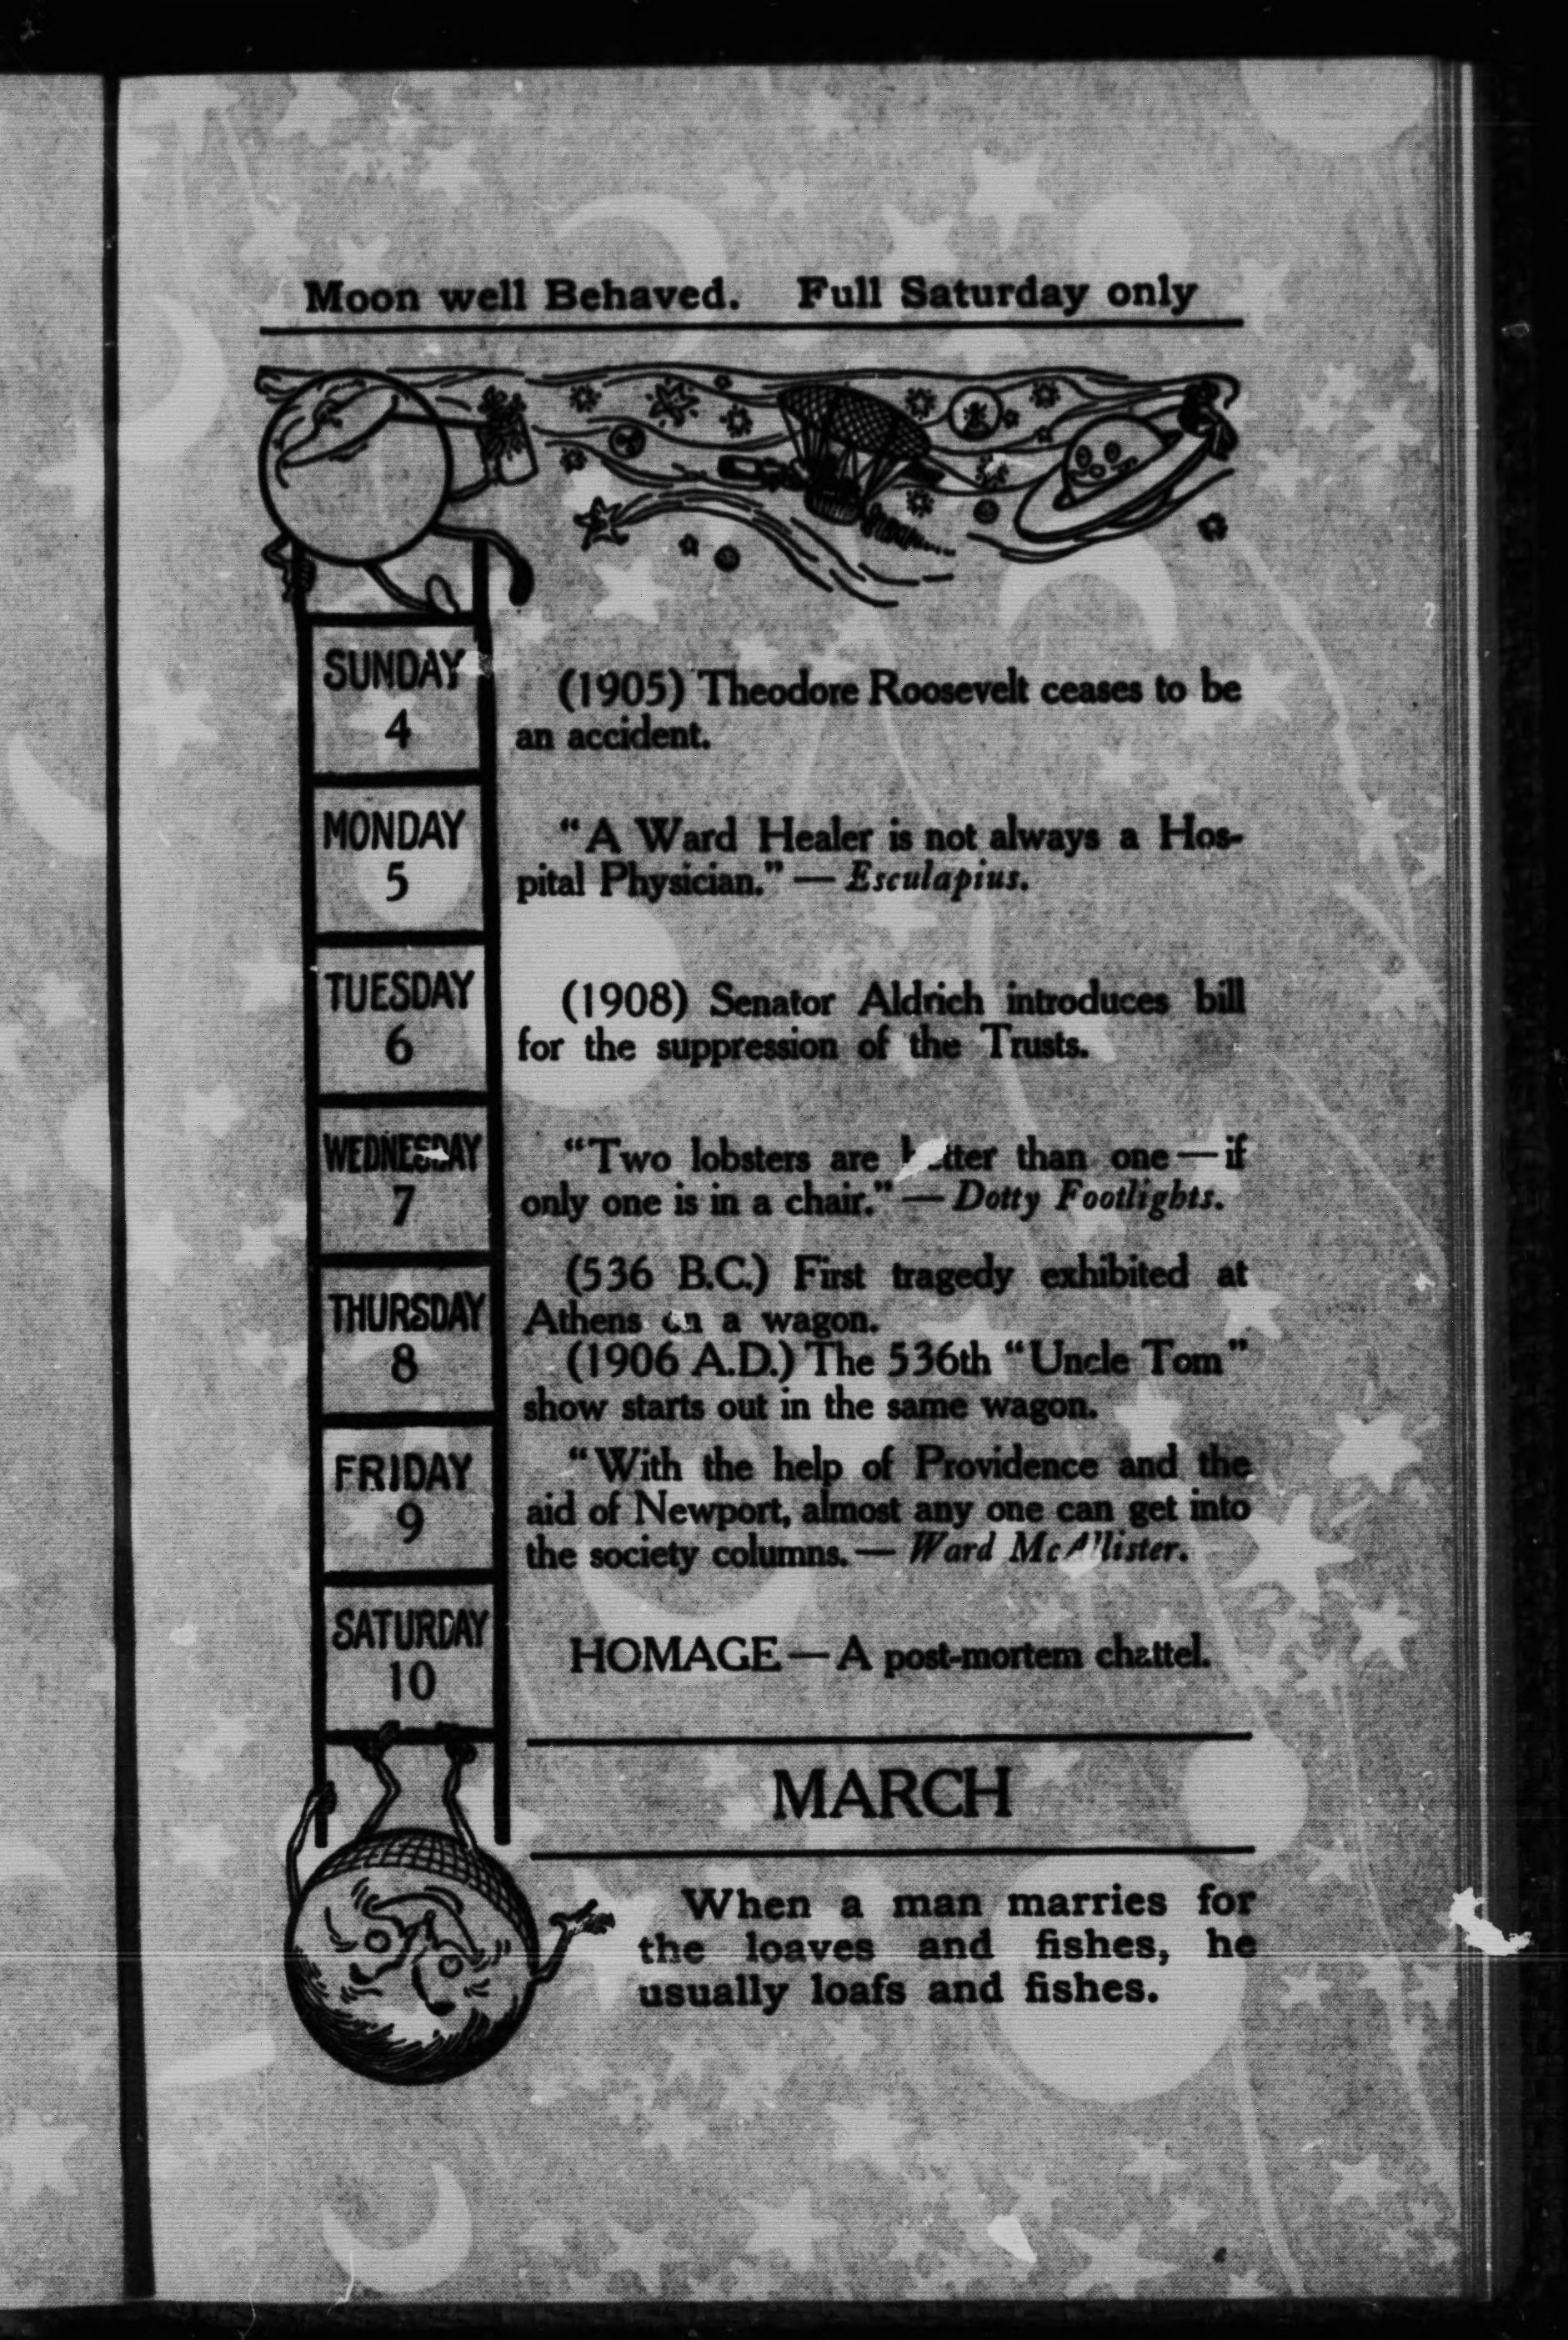 Moon well Behaved. Full Saturday only
SUNDAY
4
(1905) Theodore Roosevelt ceases to be
an accident.
MONDAY
5
“A Ward Healer is not always a Hos-
pital Physician.” — Esculapius.
TUESDAY
6
(1908) Senator Aldrich introduces bill
for the suppression of the Trusts.
WEDNESDAY
7
“Two lobsters are better than one — if
only one is in a chair.” — Dotty Footlights.
THURSDAY
8
(536 B.C.) First tragedy exhibited at
Athens on a wagon.
(1906 A.D.) The 536th “Uncle Tom”
show starts out in the same wagon.
FRIDAY
9
“With the help of Providence and the
aid of Newport, almost any one can get into
the society columns. — Ward McAllister.
SATURDAY
10
HOMAGE — A post-mortem chattel.
MARCH
When a man marries for
the loaves and fishes, he
usually loafs and fishes.